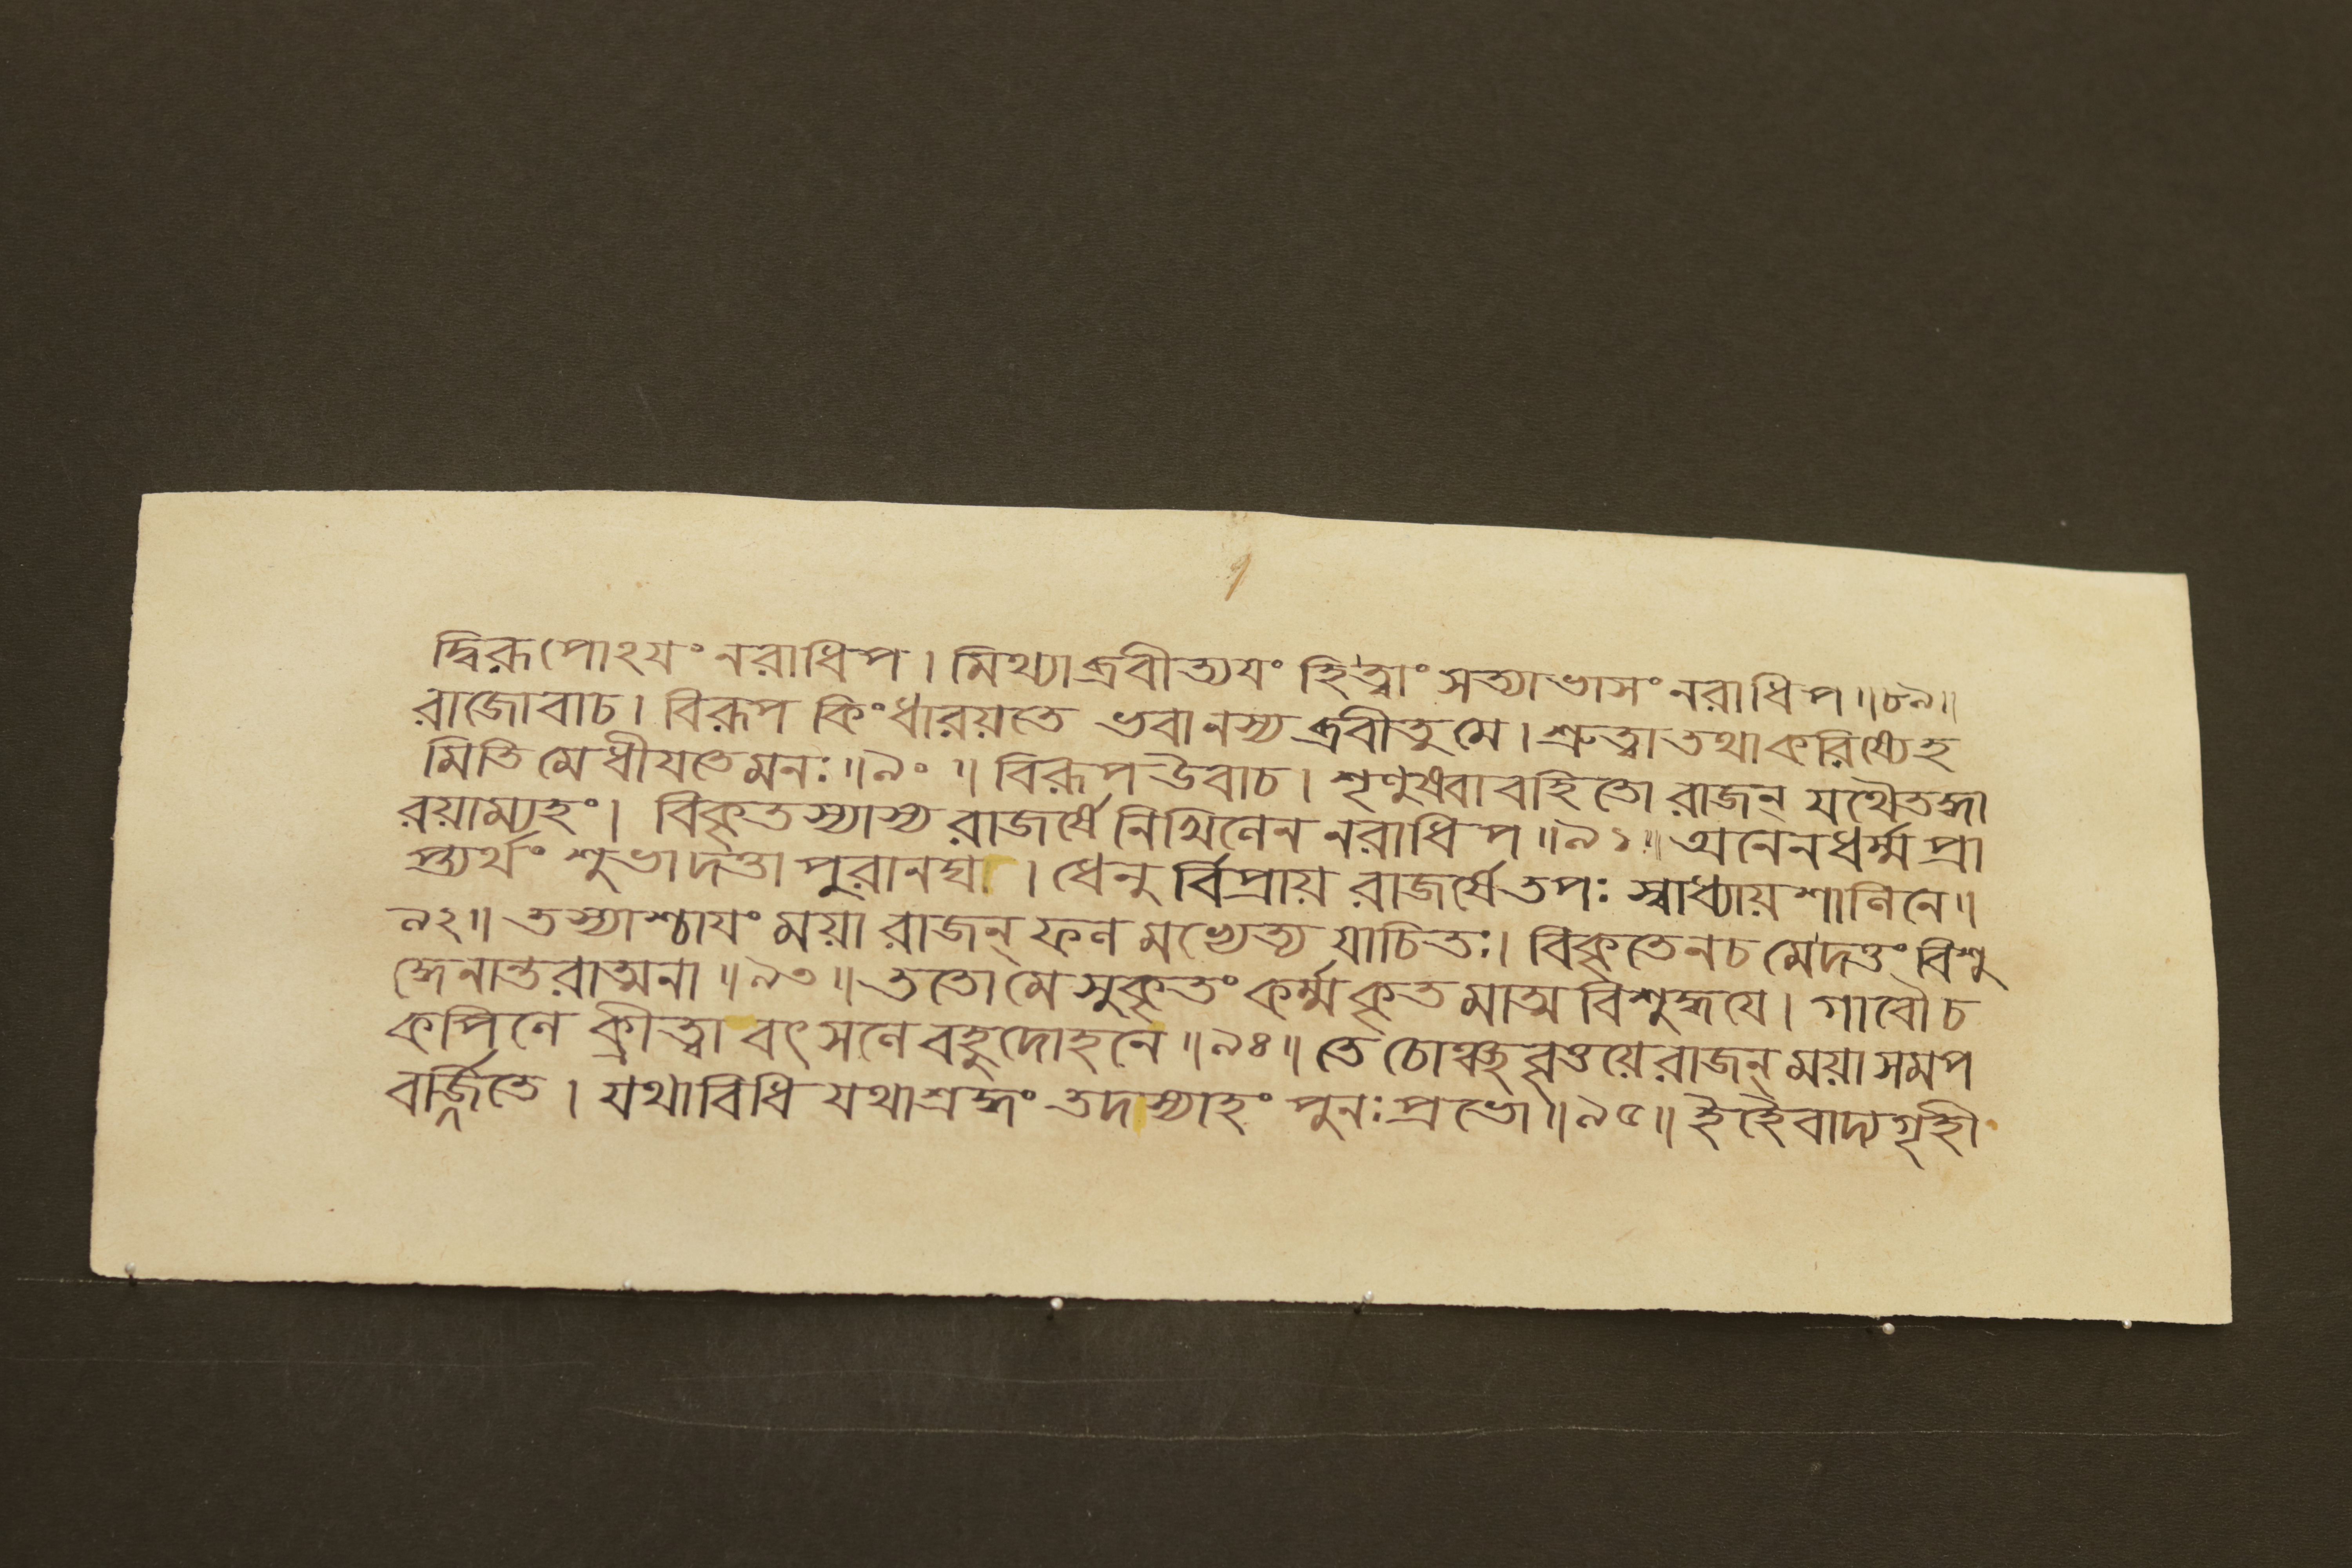 দ্বিরূপোঽযং নরাধিপ। মিথ্যাব্রবীত্যযং হিত্বাং সত্যাভাসং নরাধিপ॥৮৯॥
রাজোবাচ। বিরূপ কিংধারয়তে ভবানস্য ব্রবীতুমে। শ্রুত্বাতথাকরিষ্যেহ
মিতি মেধীযতেমনঃ॥৯০॥ বিরূপ উবাচ। শৃণুষ্বাবহিতো রাজন্ যথৈতদ্ধা
রয়াম্যহং। বিকৃতস্যাস্য রাজর্ষে নিখিলেন নরাধিপ॥৯১॥ অনেনধর্ম্মপ্রা
প্ত্যর্থং শুভাদত্তা পুরানঘা। ধেনুর্বিপ্রায় রাজর্ষেতপঃ স্বাধ্যায়শালিনে॥
৯২॥ তস্যাশ্চাযং ময়া রাজন্ ফলমভ্যেত্য যাচিতঃ। বিকৃতেনচ মেদত্তং বিশু
দ্ধেনান্তরাত্মনা॥৯৩॥ ততোমে সুকৃতং কর্ম্মকৃতমাত্মবিশুদ্ধযে। গাবৌচ
কপিলে ক্রীত্বা বৎসলে বহুদোহনে॥৯৪॥ তে চোঞ্ছবৃত্তয়েরাজন্ ময়াসমপ
বর্জ্জিতে। যথাবিধি যথাশ্রদ্ধং তদস্যাহং পুনঃপ্রভো॥৯৫॥ ইহৈবাদ্যগৃহী